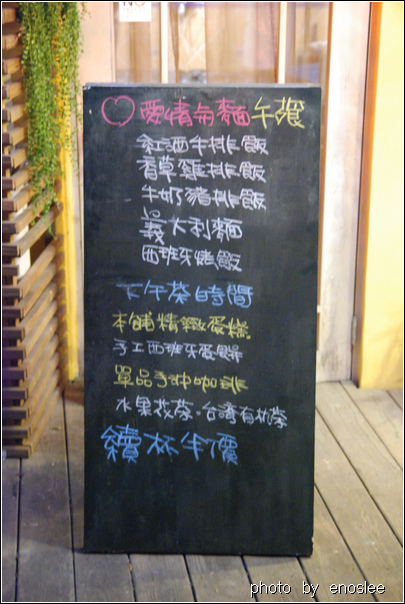 NO
愛情與麵午餐
紅酒牛排飯
香草雞排飯
牛奶豬排飯
義大利麵
西班牙烤飯
下午茶時間
本舖精緻蛋糕
手工西班牙蛋餅
單品手沖咖啡
水果花茶.台灣有机茶
續杯半價
photo by enoslee